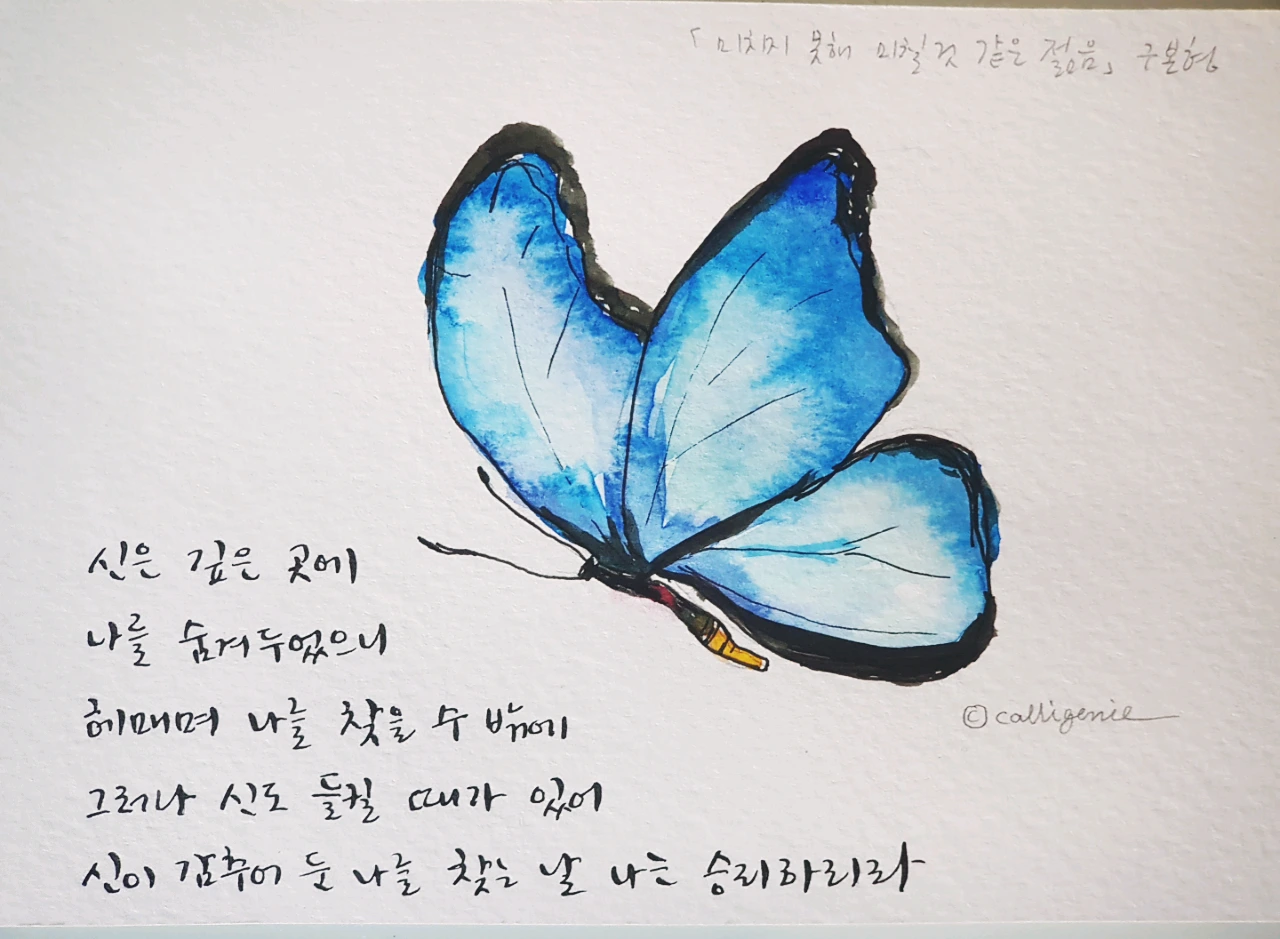 「미치지 못해 미칠 것 같은 젊음」 구본형
신은 깊은 곳에
나를 숨겨두었으니
헤매며 나를 찾을 수 밖에
그러나 신도 들킬 때가 있어
신이 감추어 둔 나를 찾는 날 나는 승리하리라
©calligenie